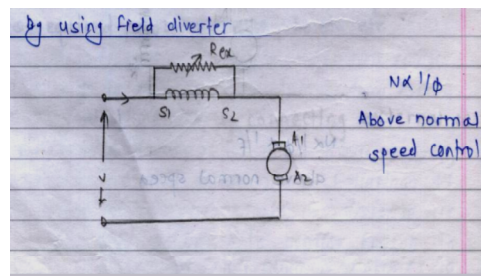 By using field diverter
Rex
S1 S2
N∝ 1/ϕ
Above normal
speed control
A1
A2
V